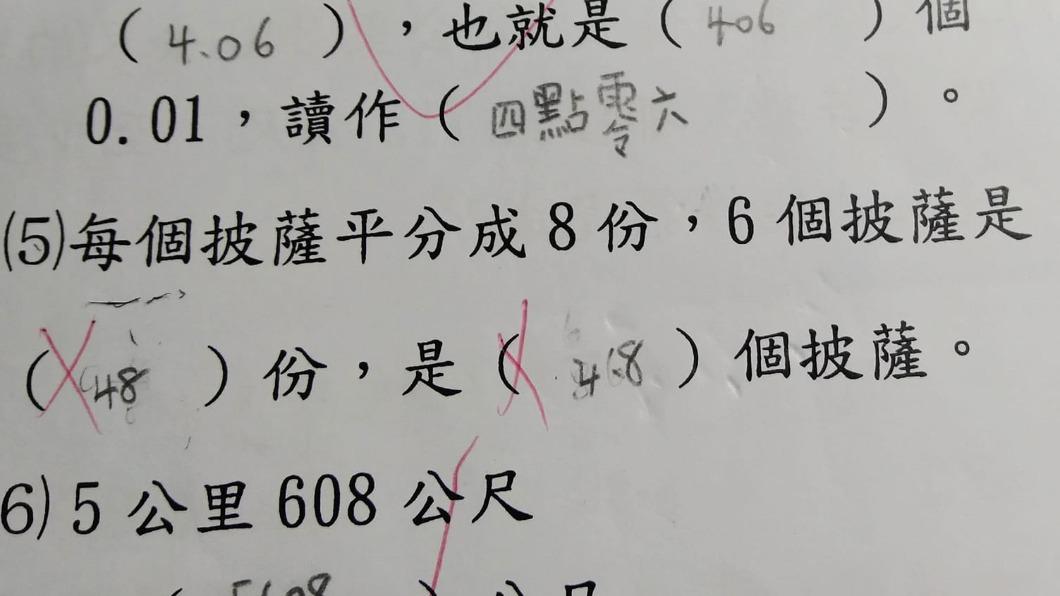 ( 4.06 ) , 也就是 ( 406 ) 個
0.01，讀作 ( 四點零六 ) 。
(5) 每個披薩平分成 8 份，6 個披薩是
( 48 ) 份，是 ( 48 ) 個披薩。
6) 5 公里 608 公尺
( 5608 ) 公尺